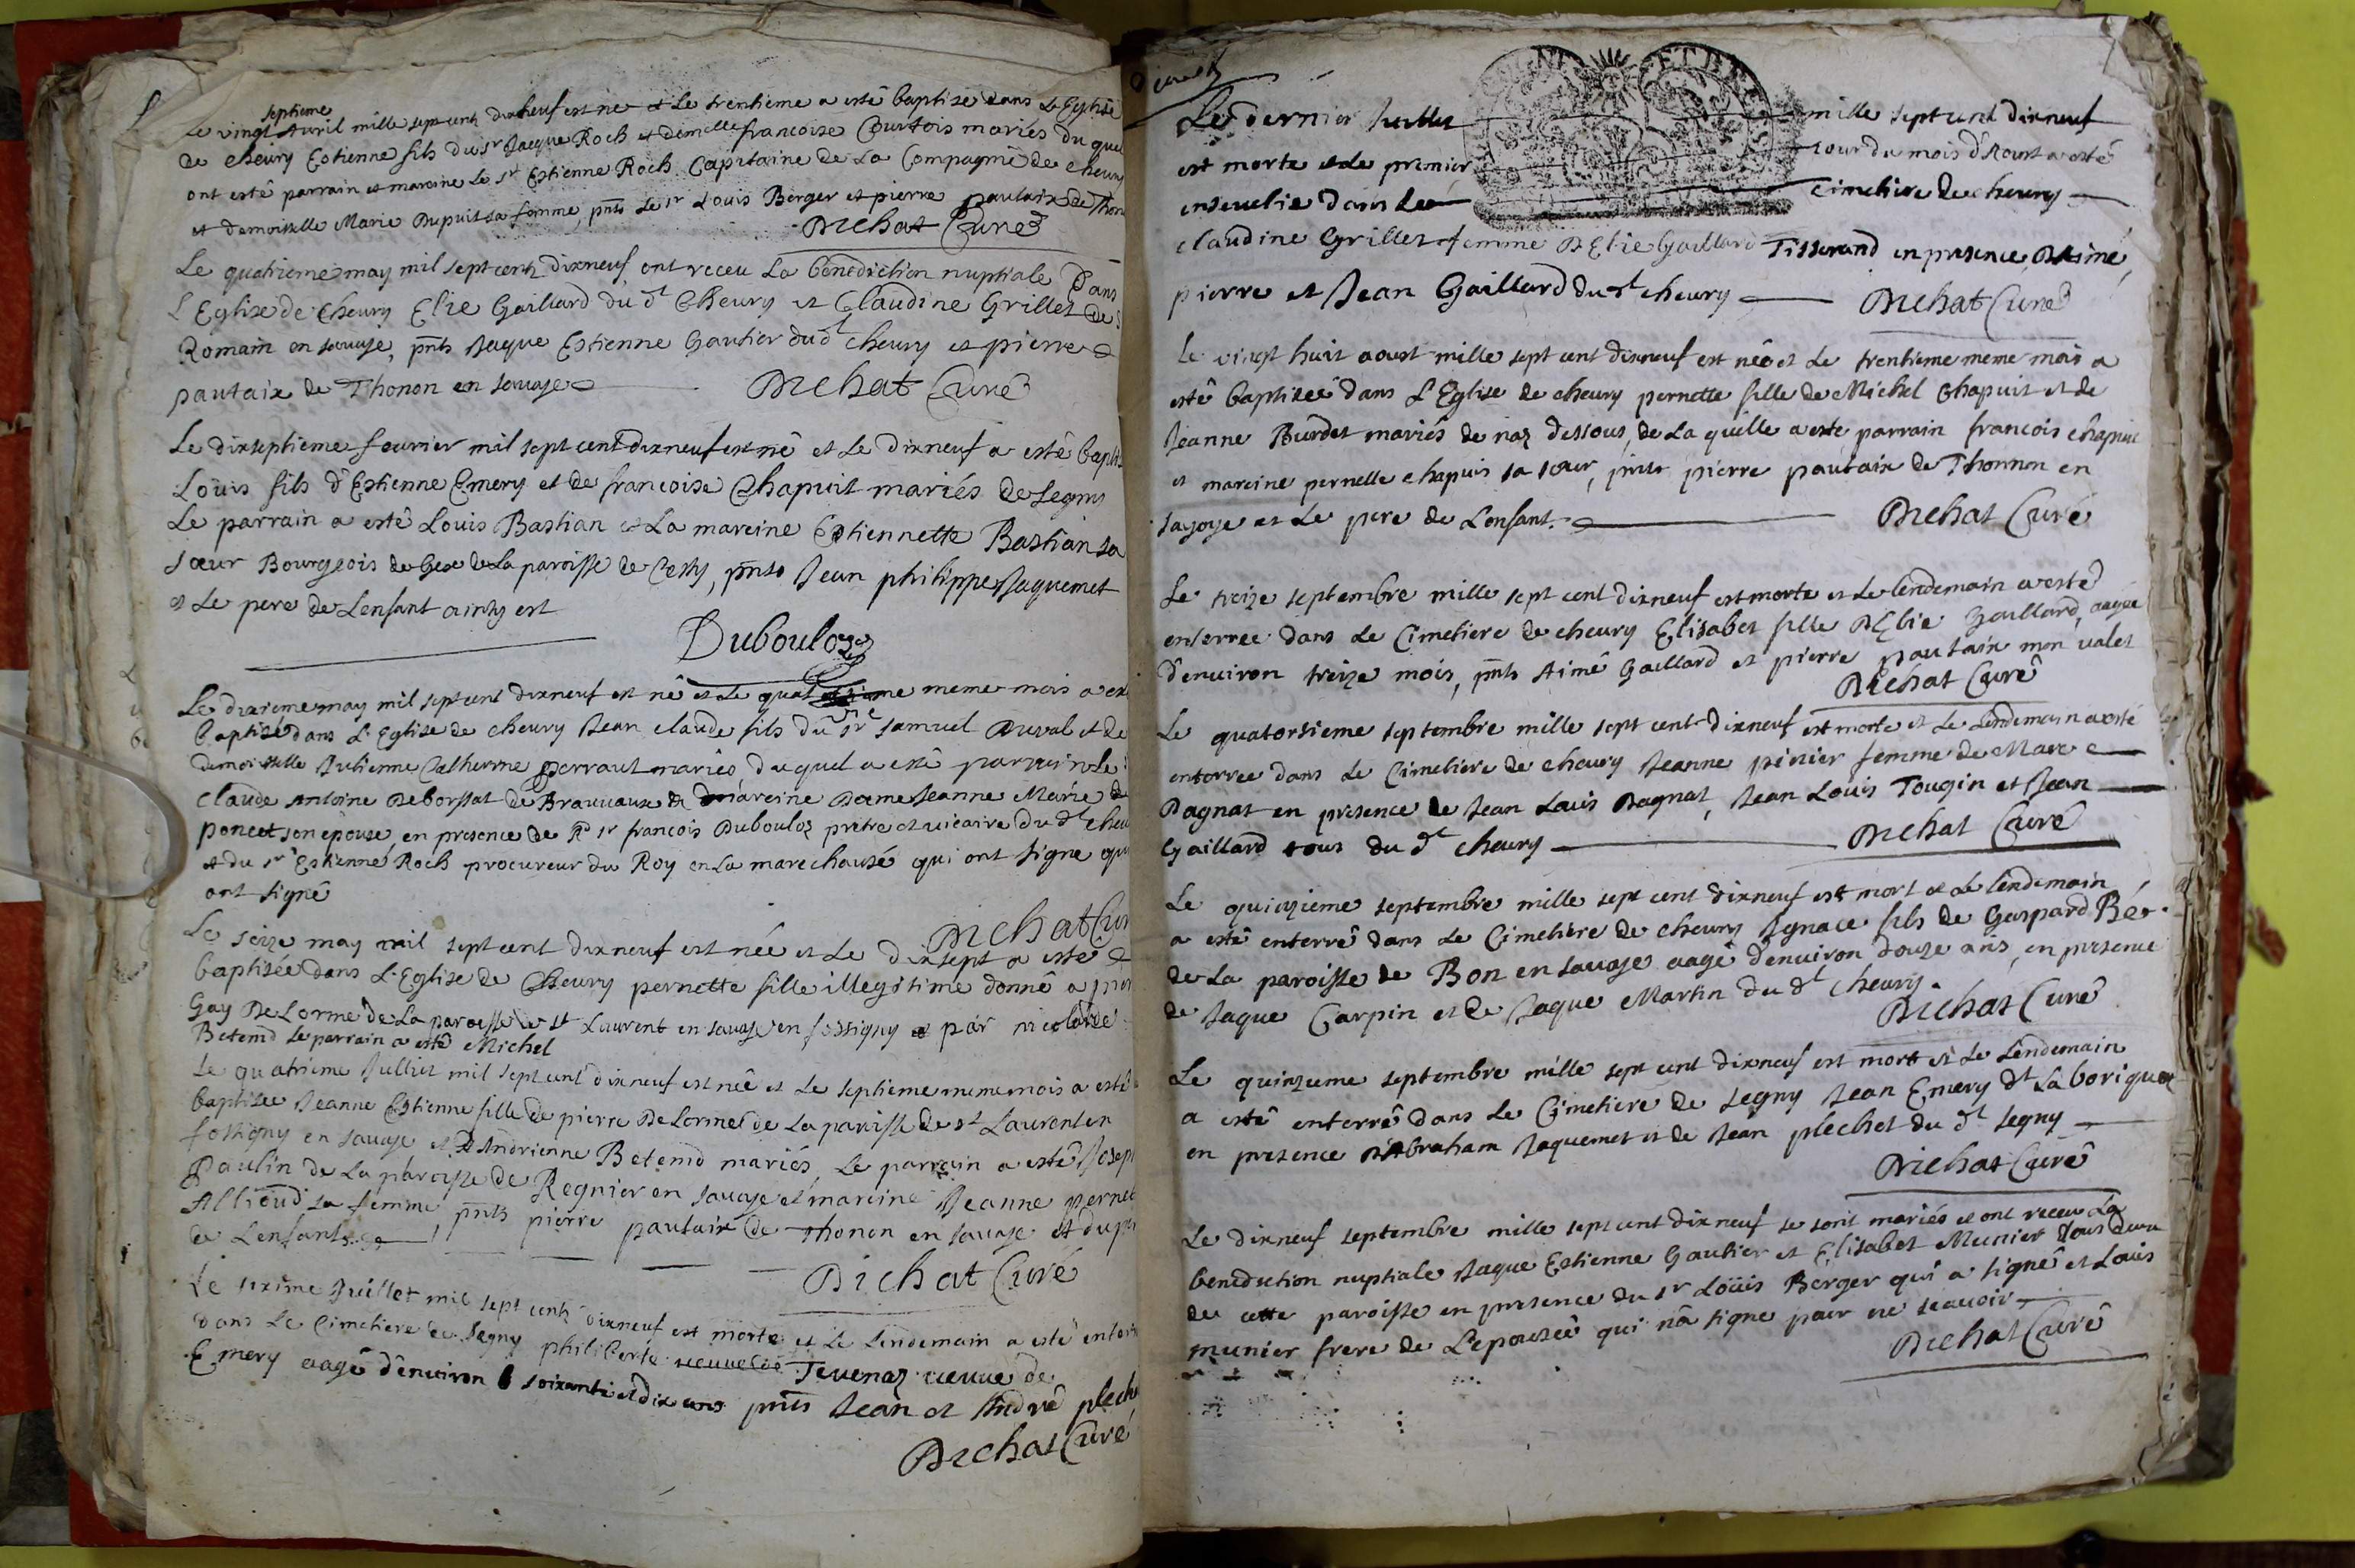 septieme
Le vingt Avril mille sept cent dixneuf est né et Le trentieme a esté baptize dans L'Eglise
de cheury Estienne fils du sr Jaque Roch et demelle francoise Courtois mariés du quel
ont esté parrain et mareine Le sr Estienne Roch Capitaine de La Compagnie de cheury
et demoiselle Marie Dupuit sa femme, pnts Le sr Louis Berger et pierre pautaix de Thon
Dichat Curé
Le quatrieme may mil sept cent dixneuf ont receu La benediction nuptiale Dans
L'Eglise de Cheury Elie Gaillard du dt Cheury et Claudine Grillet de St
Romain en sauoye, pnts Jaque Estienne Gautier du dt cheury et pierre
pautaix de Thonon en sauoye
Dichat Curé
Le dixseptieme feurier mil sept cent dixneuf est né et Le dixneuf a esté bapt
Louis fils d'Estienne Emery et de francoise Chapuit mariés de Segny
Le parrain a esté Louis Bastian et La mareine Estiennette Bastian sa
sœur Bourgeois de Gex de La paroisse de Cessy, pnts Jean philippe Jaquemet
et Le pere de L'enfant ainsy est
Dubouloz
Le dixieme may mil sept cent dixneuf est né et Le quat meme mois a est
baptizé dans L'Eglise de cheury Jean claude fils du sr Samuel Duval et de
demoiselle Julienne Catherine perraut mariés, du quel a esté parrain Le
Claude Antoine Deborssat de Brauuause mareine Dame Jeanne Marie de
poncet son epouse, en presence de Rd sr francois Dubouloz pretre et vicaire du dt cheu
et du sr Estienne Roch procureur du Roy en La marechausé qui ont signe qui
ont signé
Dichat Cur
Le seize may mil sept cent dixneuf est née et Le dixsept a esté
baptizée dans L'Eglise de Cheury pernette fille illegitime donné a pier
Gay DeLorme de La paroisse de st Laurent en sauoye en fossigny et par nicolarde
Betemd Le parrain a esté Michel
Le quatrieme Jullet mil sept cent dixneuf est née et Le septieme meme mois a esté
baptizee Jeanne Estienne fille de pierre DeLorme de La paroisse de st Laurent en
fossigny en sauoye et D'Andrienne Betemd mariés, Le parrain a esté Josep
Paulin de La paroisse de Regnier en sauoye et mareine Jeanne pernet
Alliend sa femme, pnts pierre pautaix de Thonon en sauoye et du p
de L'enfant
Dichat Curé
Le sixième Juillet mil sept cent dixneuf est morte et Le Lendemain a esté enterr
dans Le Cimetiere de Segny philiberte Teuenaz veuue de
Emery aagé d'enuiron soixante et dix ans pnts Jean et André plech
Dichat Curé
Le dernier Juillet mille sept cent dixneuf
est morte et Le premier Jour du mois d'Aoust a esté
enseuelie dans Le Cimetiere de cheury
claudine Grillet femme D'Elie Gaillard Tisserand en presence D'Aimé,
pierre et Jean Gaillard du dt cheury
Dichat Curé
Le vingt huit aoust mille sept cent dixneuf est née et Le trentieme meme mois a
esté baptizeé dans L'Eglise de cheury pernette fille de Michel Chapuit et de
Jeanne Burdet mariés de naz dessous, de La quelle a esté parrain francois chapuit
et mareine pernette chapuis sa sœur, pnts pierre pautaix de Thonnon en
sayoye et Le pere de L'enfant.
Dichat Curé
Le treize septembre mille sept cent dixneuf est morte et Le lendemain a esté
enterree dans Le Cimetiere de cheury Elisabet fille D'Elie Gaillard, aagée
d'enuiron treize mois, pnts Aimé Gaillard et pierre pautaix mon valet
Dichat Curé
Le quatorsieme septembre mille sept cent dixneuf est morte et Le Lendemain a esté
enterree dans Le Cimetiere de cheury Jeanne pinier femme de Marc
Dagnat en presence de Jean Louis Dagnat, Jean Louis Tougin et Jean
Gaillard tous du dt cheury
Dichat Curé
Le quinzieme septembre mille sept cent dixneuf est mort et Le Lendemain
a esté enterré dans Le Cimetiere de cheury Ignace fils de Gaspard Be
de La paroisse de Bon en sauoye aagé d'enuiron douze ans, en presence
de Jaque Carpin et de Jaque Martin du dt cheury.
Dichat Curé
Le quinzieme septembre mille sept cent dixneuf est mort et Le Lendemain
a esté enterré dans Le Cimetiere de Segny Jean Emery dt Laborique
en presence D'Abraham Jaquemet et de Jean plechet du dt Segny
Dichat Curé
Le dixneuf septembre mille sept cent dixneuf se sont mariés et ont receu La
benediction nuptiale Jaque Estienne Gautier et Elisabet Munier tous deux
de cette paroisse en presence du sr Loüis Berger qui a signé et Louis
munier frere de L'epouzeé qui n'a signe pour ne scauoir
Dichat Curé